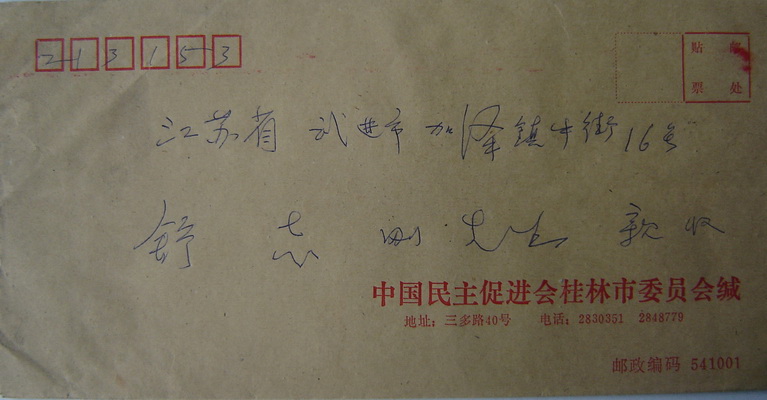 213153
贴 邮
票 处
江苏省 武进市 加泽镇中街16号
舒志刚先生 亲收
中国民主促进会桂林市委员会缄
地址：三多路40号 电话：2830351 2848779
邮政编码 541001